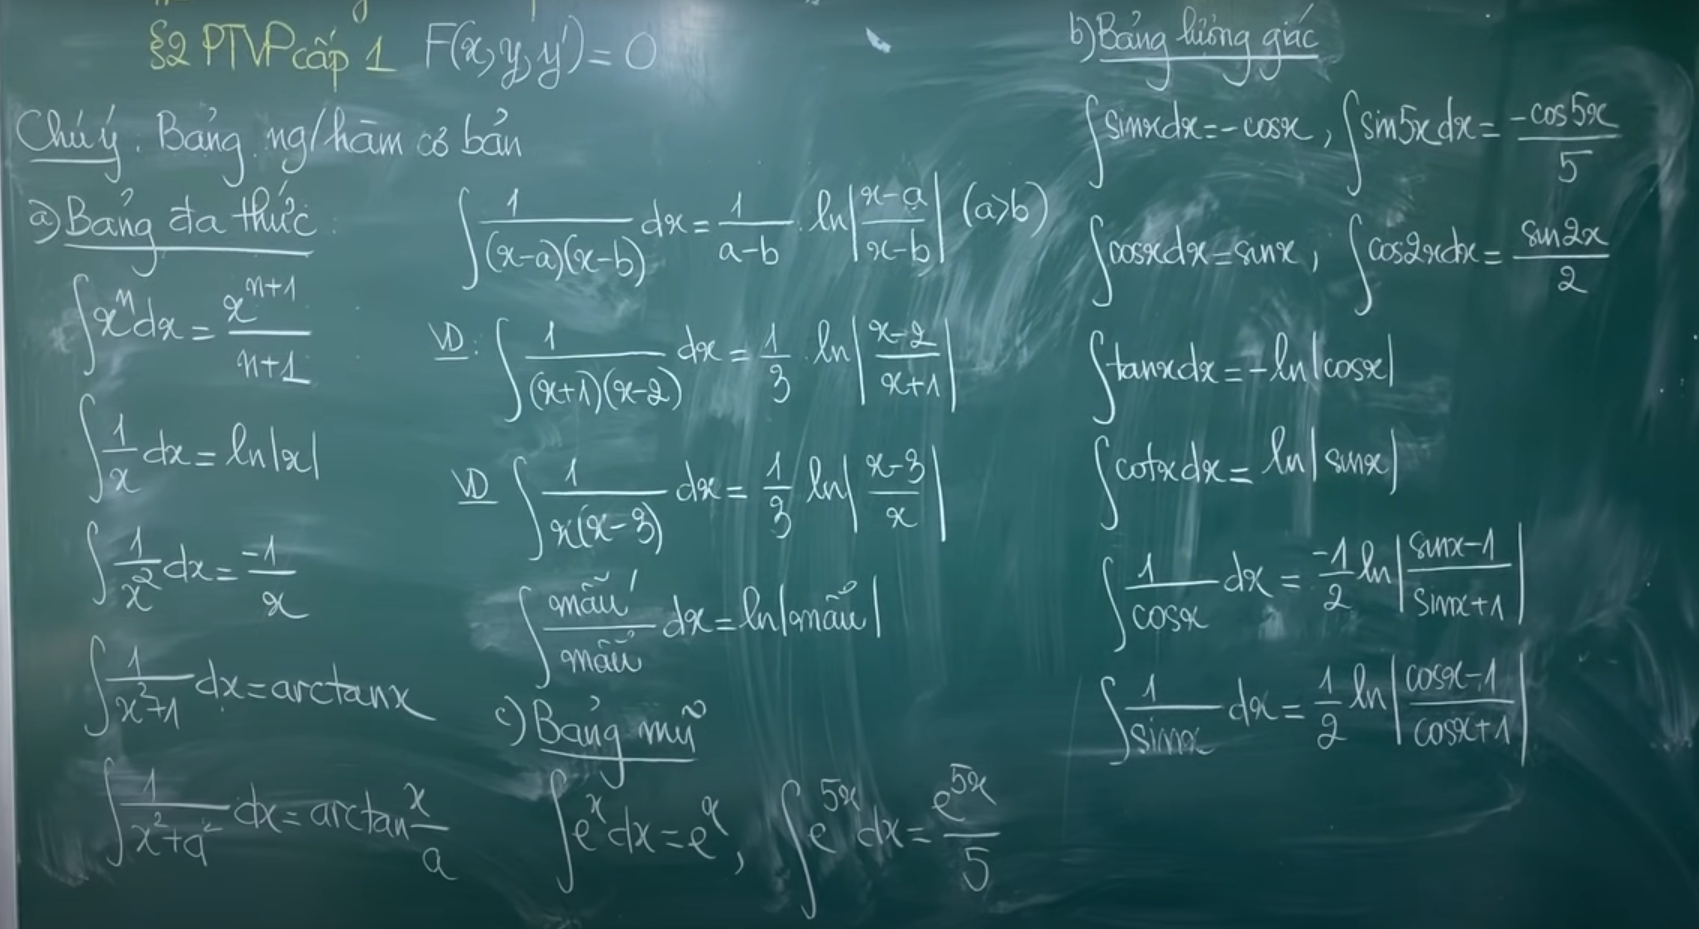 §2 PTVP cấp 1 F(x, y, y') = 0
Chú ý: Bảng ng/hàm cơ bản
a) Bảng đa thức:
∫ x^n dx = x^(n+1)/(n+1)
∫ 1/x dx = ln|x|
∫ 1/x² dx = -1/x
∫ 1/(x²+1) dx = arctanx
∫ 1/(x²+a²) dx = arctan x/a
∫ 1/((x-a)(x-b)) dx = 1/(a-b) . ln|(x-a)/(x-b)| (a>b)
VD: ∫ 1/((x+1)(x-2)) dx = 1/3 . ln|(x-2)/(x+1)|
VD ∫ 1/(x(x-3)) dx = 1/3 ln|(x-3)/x|
∫ mẫu'/mẫu dx = ln|mẫu|
c) Bảng mũ
∫ e^x dx = e^x, ∫ e^(5x) dx = e^(5x)/5
b) Bảng lượng giác
∫ sinx dx = -cosx, ∫ sin5x dx = -cos5x/5
∫ cosx dx = sinx, ∫ cos2x dx = sin2x/2
∫ tanx dx = -ln|cosx|
∫ cotx dx = ln|sinx|
∫ 1/cosx dx = -1/2 ln|(sinx-1)/(sinx+1)|
∫ 1/sinx dx = 1/2 ln|(cosx-1)/(cosx+1)|